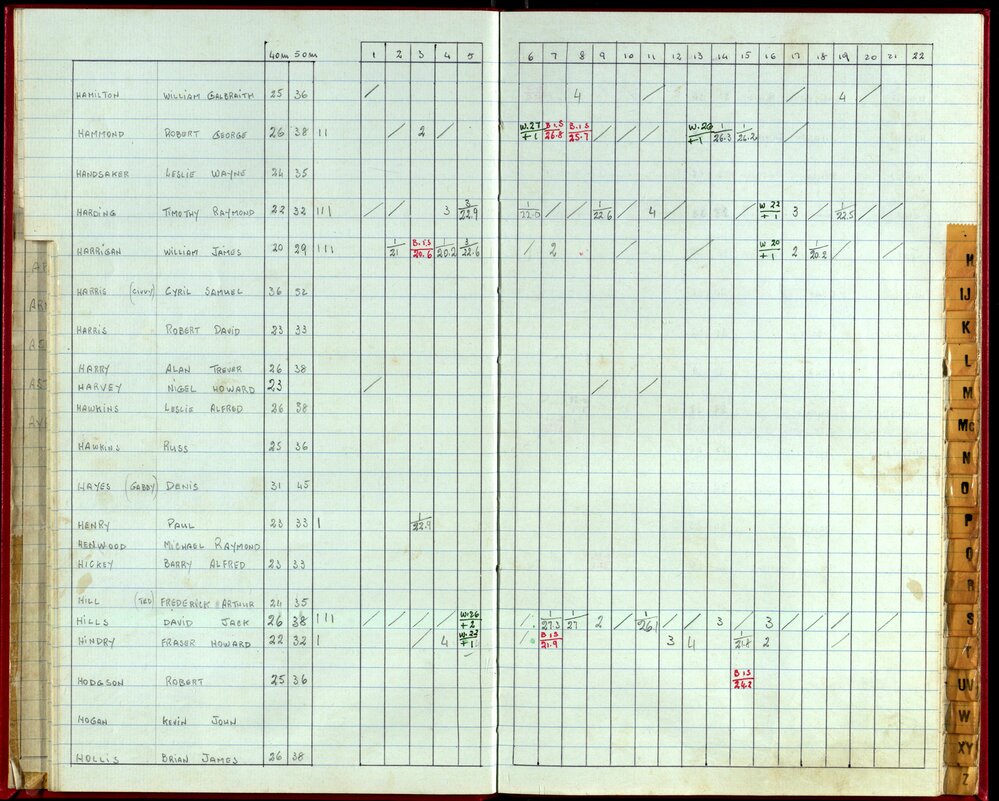 40m 50m 1 2 3 4 5 6 7 8 9 10 11 12 13 14 15 16 17 18 19 20 21 22
HAMILTON WILLIAM GALBRAITH 25 36 / 4 / / 4 /
HAMMOND ROBERT GEORGE 26 38 11 / 2 / W.27/+1 B.1.S/26.8 B.1.S/25.7 / / / W.26/+1 1/26.3 1/26.2 /
HANDSAKER LESLIE WAYNE 24 35
HARDING TIMOTHY RAYMOND 22 32 111 / / 3 3/22.9 1/22.0 / / 1/22.6 / 4 / / W 22/+1 3 / 1/22.5 / /
HARRIGAN WILLIAM JAMES 20 29 111 1/21 B.1.S/20.6 1/20.2 3/22.6 / 2 / / W 20/+1 2 1/20.2 / /
HARRIS (CIVVY) CYRIL SAMUEL 36 52
HARRIS ROBERT DAVID 23 33
HARRY ALAN TREVOR 26 38
HARVEY NIGEL HOWARD 23 / / /
HAWKINS LESLIE ALFRED 26 38
HAWKINS RUSS 25 36
HAYES (GABBY) DENIS 31 45
HENRY PAUL 23 33 1 1/22.9
HENWOOD MICHAEL RAYMOND
HICKEY BARRY ALFRED 23 33
HILL (TED) FREDERICK ARTHUR 24 35
HILLS DAVID JACK 26 38 111 / / / / W.26/+2 / 1/27.3 1/27 2 / 1/26.1 / / 3 / 3 / / / / /
HINDRY FRASER HOWARD 22 32 1 / 4 W.23/+1 / B 1 S/21.9 3 4 1/21.8 2 /
HODGSON ROBERT 25 36 B 1 S/24.2
HOGAN KEVIN JOHN
HOLLIS BRIAN JAMES 26 38
H
IJ
K
L
M
Mc
N
O
P
Q
R
S
T
UV
W
XY
Z